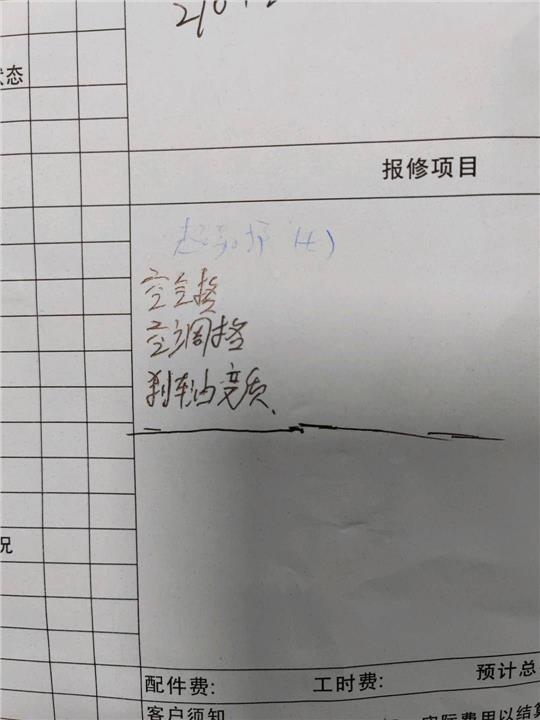 状态
报修项目
空气格
空调格
刹车油变质
况
配件费: 工时费: 预计总
客户须知 实际费用以结算